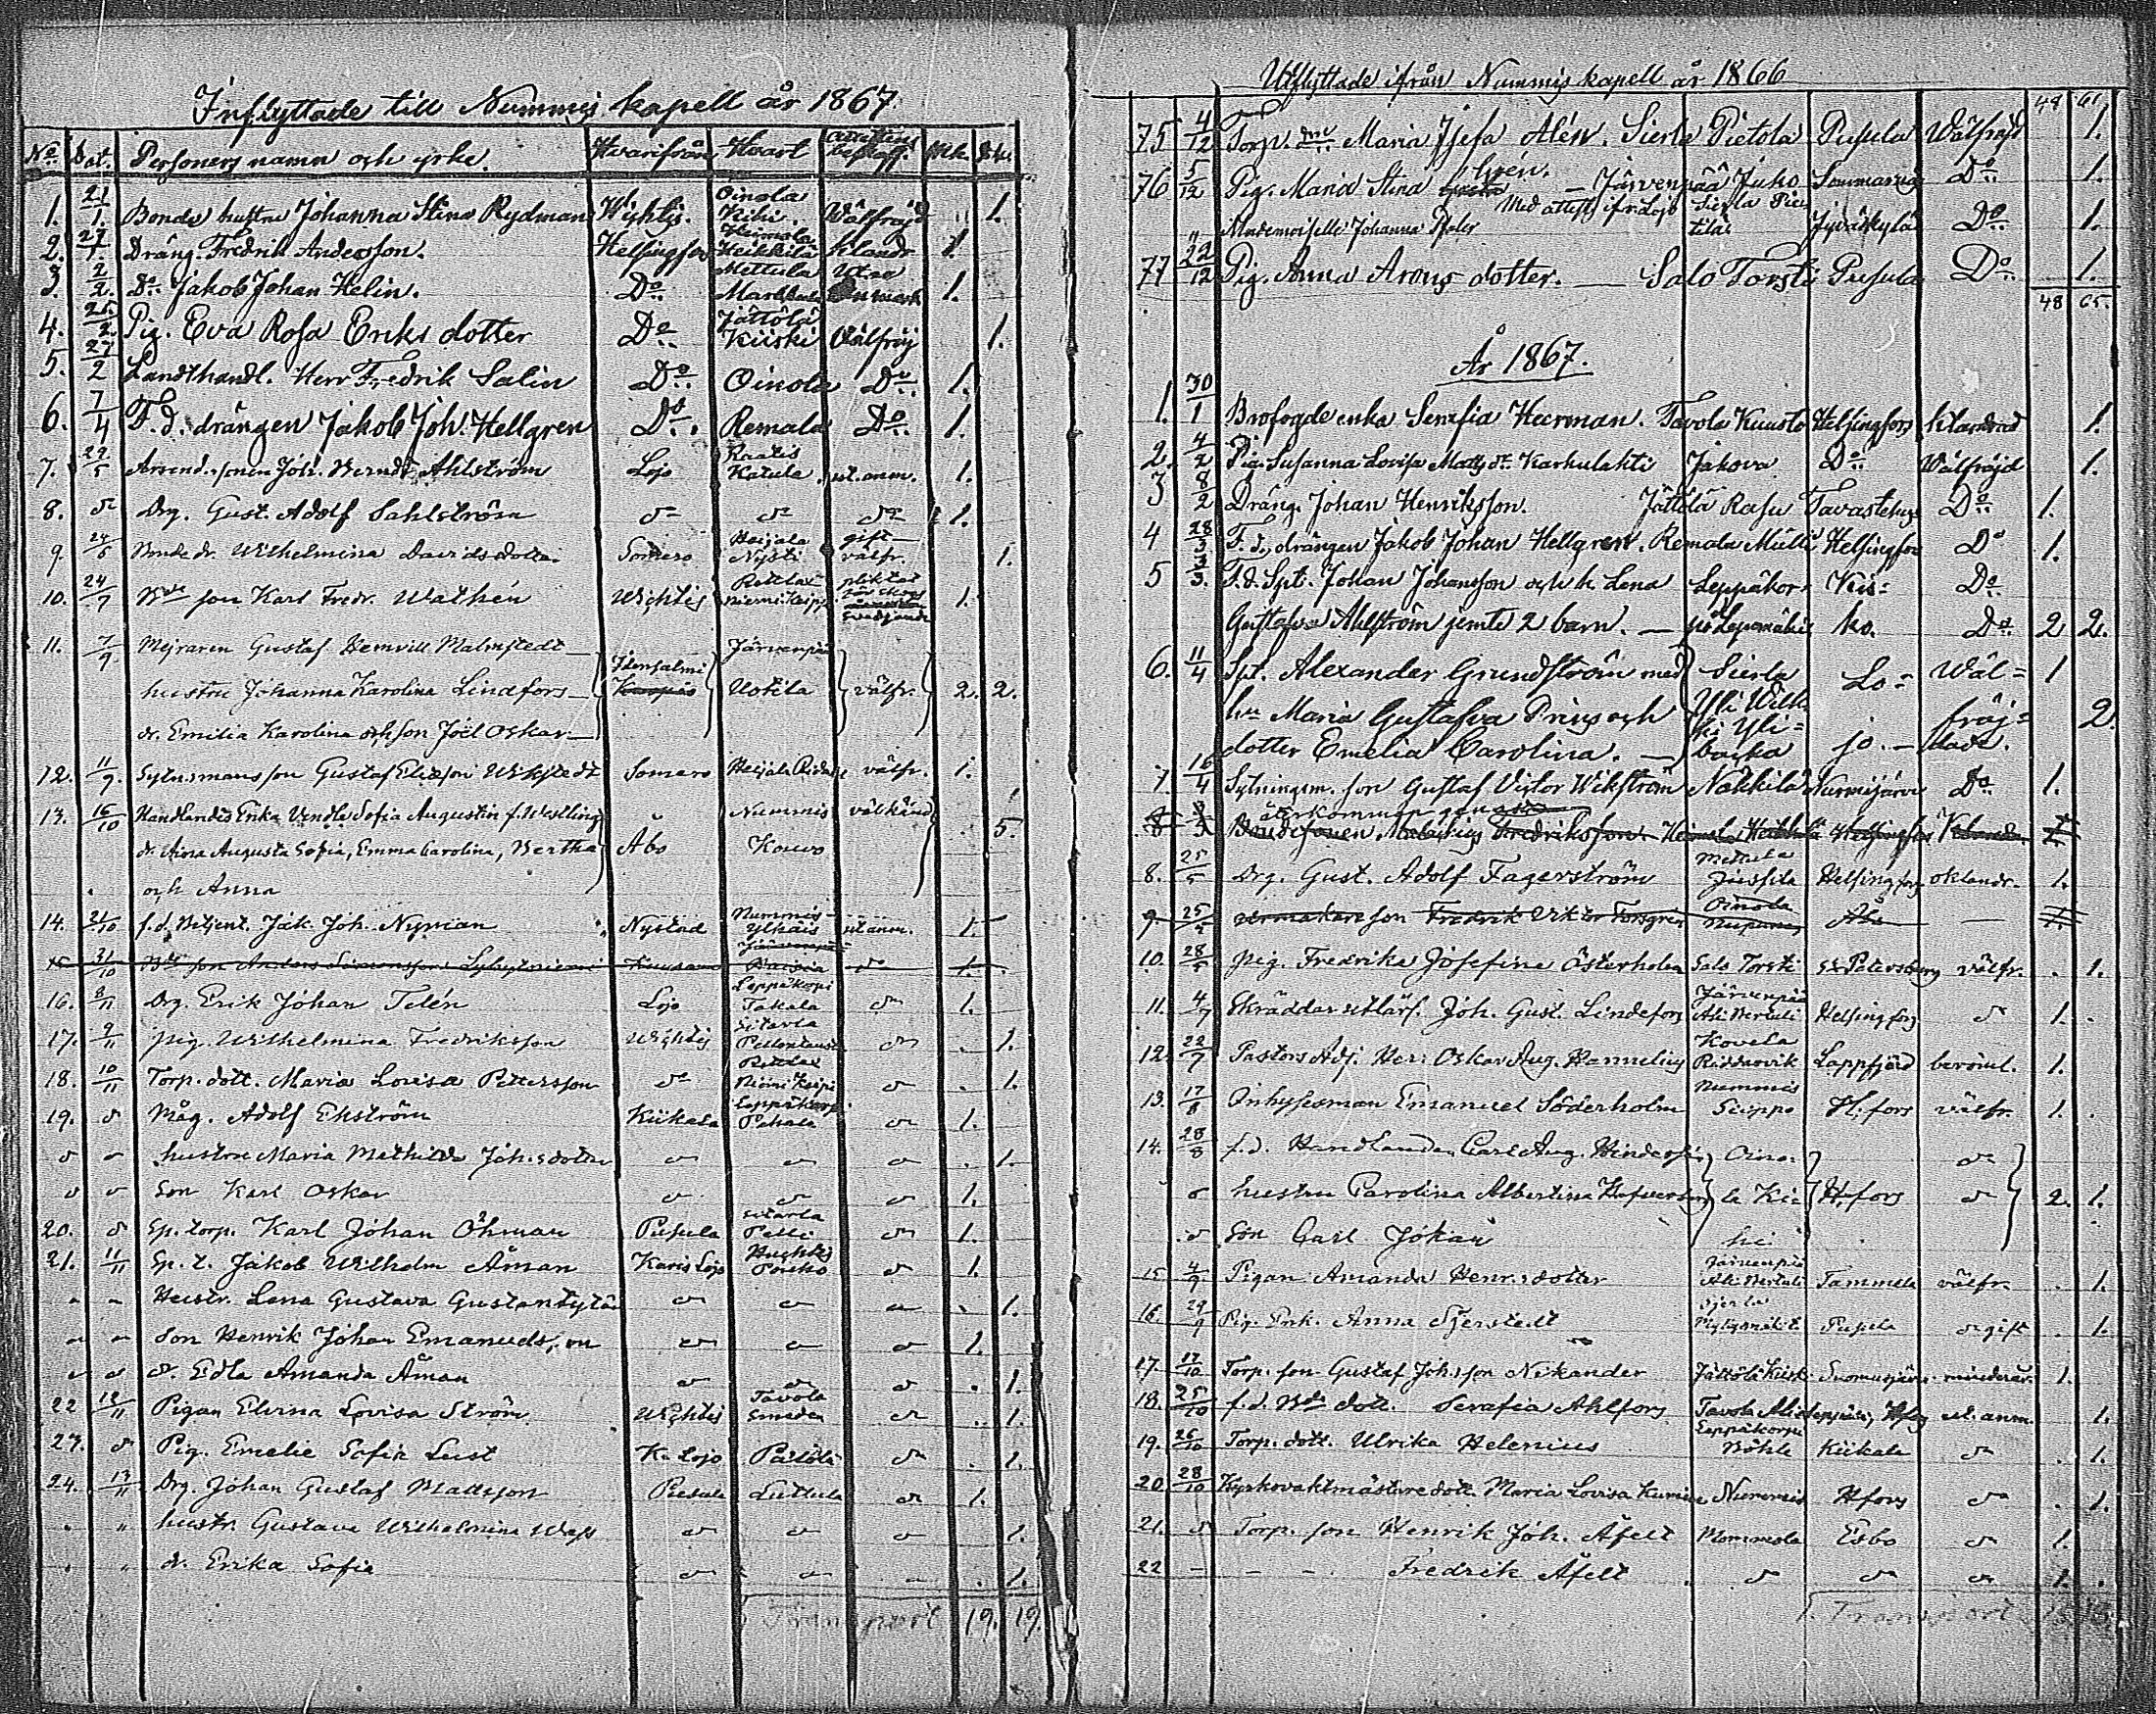 Inflyttade till Nummis kapell år 1867
No. Dat. Personers namn och yrke. Hvarifrån Hvart attestens beskaff. Mk. Qk.
1. 21/1. Bonde hustru Johanna Stina Rydman Wichtis. Oinola Kihi. Wälfräjd 1.
2. 27/1. Dräng. Fredrik Andersson. Helsingfors Heimola Heikkilä klandr 1.
3. 2/2. Do. Jakob Johan Helin. Do Mettula utan anmärk 1.
4. 25/2. Pig. Eva Rosa Eriks dotter Do Jättölä Kiiski Wälfräj 1.
5. 27/2 Landthandl. Herr Fredrik Salin Do Oinola Do 1.
6. 7/4 F. d. drängen Jakob Joh. Hellgren Do. Remala Do 1.
7. 22/5 Arrend. sonen Joh. Berndt Ahlström Lojo Raatis Katula ut. anm. 1.
8. Drg. Gust. Adolf Sahlström 1.
9. 24/5 Bonde dr. Wilhelmina Davidsdotter Somero Heijala Nysti gift välfr. 1.
10. 24/7 son Karl Fredr. Walhén Wichtis Retlax Niemi Keipi 1.
11. 7/9 Mejraren Gustaf Hemvill Malmstedt Järvenpää
hustru Johanna Karolina Lindfors Idensalmi Uotila välfr. 2. 2.
dr. Emilia Karolina och son Joël Oskar
12. 11/9. Sytn.mans son Gustaf Eliasson Wikstedt Somero Heijala välfr. 1.
13. 16/10 Handlandes Enka Vendla Sofia Augustin f. Westling Nummis välkänd 5.
dr. Aina Augusta Sofia, Emma Carolina, Bertha Åbo Kouvo
och Anna
14. 21/10 f. d. Betjent. Jak. Joh. Nyman Nystad Nummis Ylhäis ut anm. 1.
31/10 son Anders Simonsson Järvenpää 1.
16. 8/11 Drg. Erik Johan Telén Lojo Leppäkorpi Takala 1.
17. 9/11 Pig. Wilhelmina Fredriksson Wichtis Sitarla 1.
18. 10/11 Torp. dott. Maria Lovisa Pettersson Retlax Niemi Keipi 1.
19. Måg. Adolf Ekström Kiikala Leppäkorpi Pahala 1.
hustru Maria Mathilda Joh.sdotter 1.
Son Karl Oskar 1.
20. Sp. torp. Karl Johan Öhman Pusula Sitarla Pelli 1.
21. 11/11 Sp. t. Jakob Wilhelm Åman Karis Lojo Huhti 1.
Hustr. Lena Gustava Gustantytär 1.
Son Henrik Johan Emanuelsson 1.
d. Edla Amanda Åman 1.
22 12/11 Pigan Elvina Lovisa Ström Wichtis Tavola 1.
23. Pig. Emelie Sofia Lust K. Lojo 1.
24. 13/11 Drg. Johan Gustaf Mattsson Pusula Luttula 1.
hustr. Gustava Wilhelmina Wass 1.
dr. Erika Sofia 1.
Transport 19. 19.
Utflyttade ifrån Nummis kapell år 1866
48 61.
75 4/12 Torp. Maria Josefa Alén. Sierla Pietola Pusula Wälfräjd 1.
76 5/12 Pig. Maria Stina Grén. Järvenpää Juho Sammatti Do 1.
Med attest ifr. Lojo
" Mademoiselle Johanna Pfaler Sierla Pietilä Jyväskylä Do 1.
77 22/12 Pig. Anna Arons dotter. Salo Torsti Pusula Do 1.
48 65.
År 1867.
1. 30/1 Brofogde enka Serafia Herman. Tavola Kuusto Helsingfors klandrad 1.
2. 4/2 Pig. Susanna Lovisa Matts dr. Karkulahti Jakova Do Wälfräjd 1.
3 8/2 Dräng. Johan Henriksson. Jättölä Rasu Tavastehus Do 1.
4 28/3 F. d. drängen Jakob Johan Hellgren. Remala Mülli Helsingfors Do 1.
5 3/3. F. d. Spt. Johan Johansson och h. Lena Leppäkor= Kis= Do
Gustafva Ahlström jemte 2 barn. pi Lepomäki ko. Do 2 2.
6. 11/4 Spt. Alexander Grundström med Sierla Lo= Wäl= 1
hu Maria Gustafva Prins och Yli Wilk fräj= 2.
dotter Emelia Carolina. ki Yli= backa jo. dade.
7. 16/4 Sytningsm. son Gustaf Victor Wikström Nakkila Nurmijärvi Do 1.
återkommen genast
Bondesonen Fredriksson Heimola Heikkilä Helsingfors
8. 25/5 Drg. Gust. Adolf Fagerström Mettula Jussila Helsingfors oklandr. 1.
9. 25/5 Urmakare son Fredrik Viktor Forsgren Oinola Åbo
10. 28/5 pig. Fredrika Josefina Österholm Salo Torsti St. Petersburg välfr. 1.
11. 4/7 Skräddar utlärl. Joh. Gust. Lindefors Järvenpää Ali Bertuli Helsingfors 1.
12. 22/7 Pastors Adj. Herr Oskar Aug. Hannelius Kovela Riddarvik Lappfjärd berömd. 1.
13. 17/8 Inhysesman Emanuel Söderholm Nummis Seippo H:fors välfr. 1.
14. 28/8 f. d. Handlanden Carl Aug. Hindersin Oino=
hustru Carolina Albertina la Ki= H:fors 2. 1.
Son Carl Johan hi
15 4/9. Pigan Amanda Henr.sdotter Järvenpää Ali Bertuli Tammela välfr. 1.
16. 29/9 Pig. Enk. Anna Sjerstedt Sjerla Pusula gift 1.
17. 17/10 Torp. son Gustaf Johsson Nikander Jättölä Kiiski Suomusjärvi minderår. 1.
18. 25/10 f. d. dott. Serafia Ahlfors Tavola H:fors ut. anm. 1.
19. 26/10 Torp. dott. Ulrika Helenius Leppäkorpi Böhle Kiikala 1.
20. 28/10 Kyrkovaktmästare dott. Maria Lovisa Nummis H:fors 1.
21. Torp. son Henrik Joh. Åfelt Mommola Esbo 1.
22 Fredrik Åfelt 1.
Transport